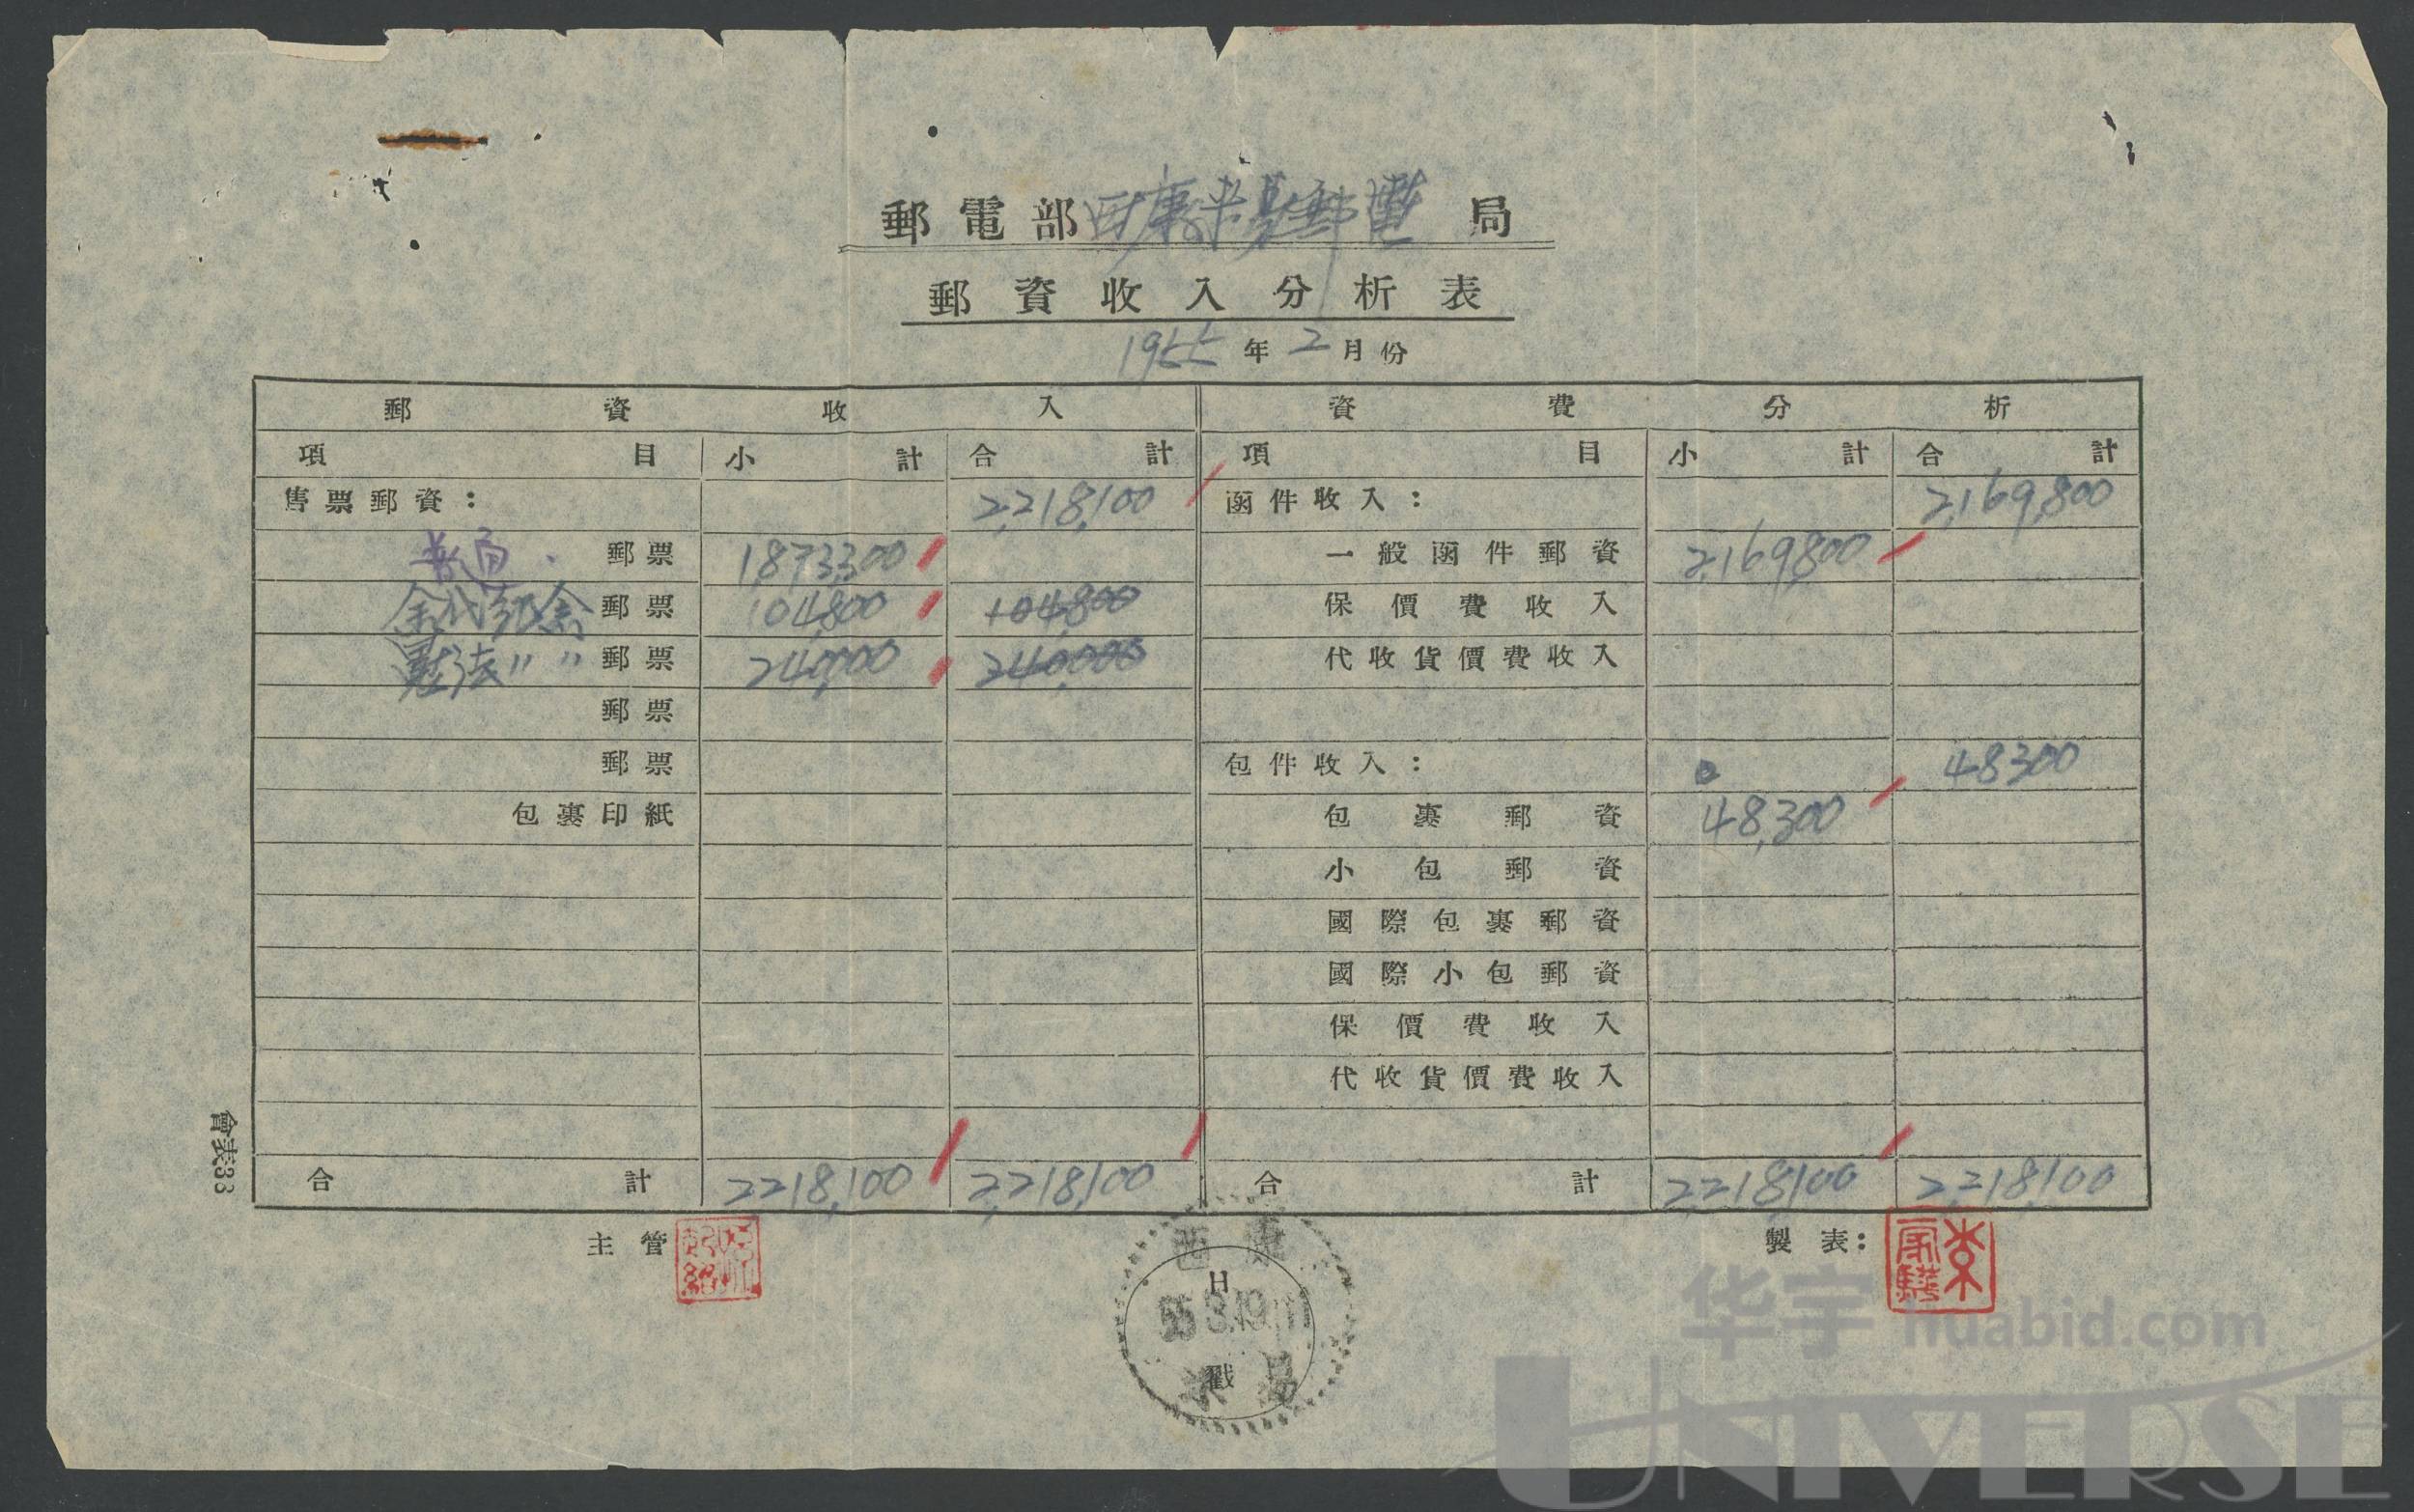 郵電部西康米易郵電局
郵資收入分析表
1955年2月份
郵資收入 資費分析
項目 小計 合計 項目 小計 合計
售票郵資： 2,218,100 函件收入： 2,169,800
普通 郵票 1,873,300 一般函件郵資 2,169,800
郵票 104,800 104,800 保價費收入
郵票 240,000 240,000 代收貨價費收入
郵票
郵票 包件收入： 48300
包裹印紙 包裹郵資 48,300
小包郵資
國際包裹郵資
國際小包郵資
保價費收入
代收貨價費收入
合計 2218,100 2,218,100 合計 2,218,100 2,218,100
會表33
主管 製表：
西康
日
55.3.19.11
戳
米易
华宇 huabid.com
UNIVERSE